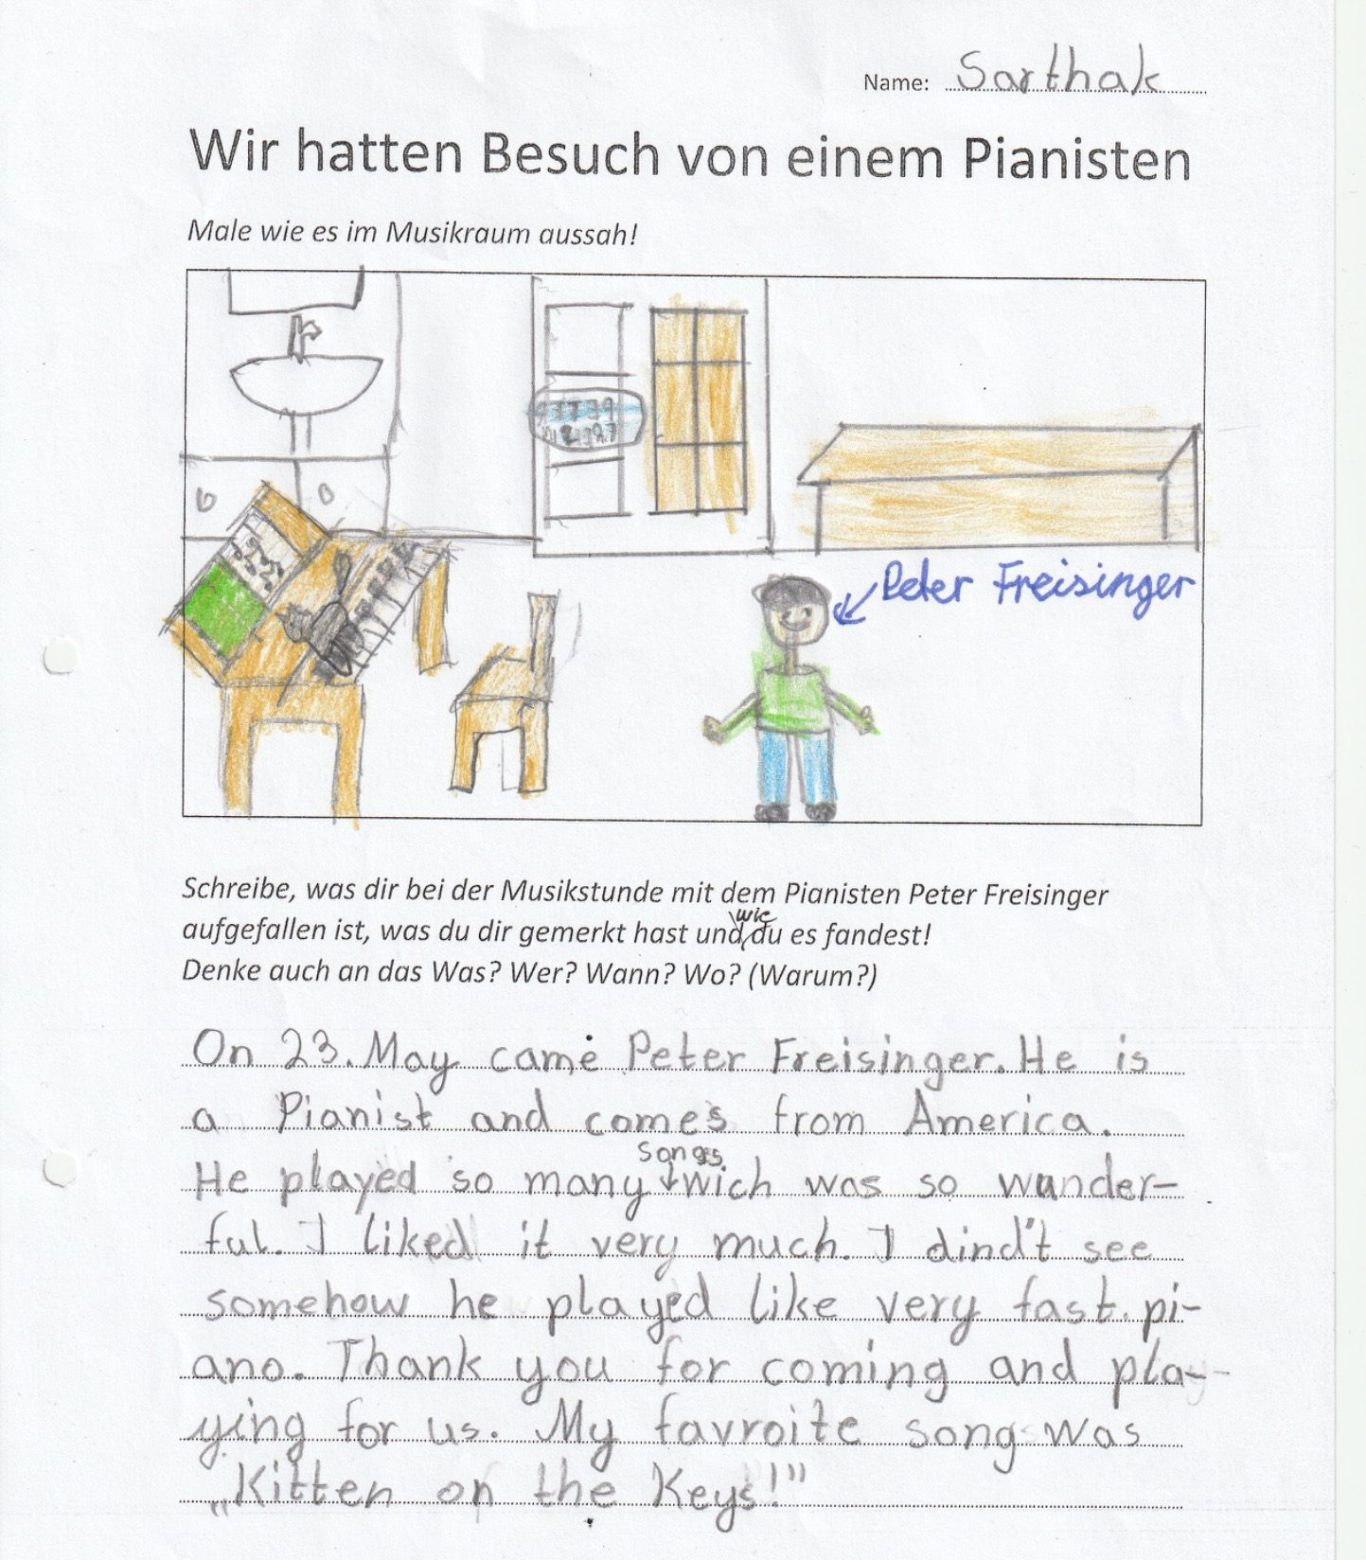 Name: Sarthak
Wir hatten Besuch von einem Pianisten
Male wie es im Musikraum aussah!
Peter Freisinger
Schreibe, was dir bei der Musikstunde mit dem Pianisten Peter Freisinger
wie
aufgefallen ist, was du dir gemerkt hast und du es fandest!
Denke auch an das Was? Wer? Wann? Wo? (Warum?)
On 23. May came Peter Freisinger. He is
a Pianist and comes from America.
songs
He played so many wich was so wunder-
ful. I liked it very much. I dind't see
somehow he played like very fast pi-
ano. Thank you for coming and pla-
ying for us. My favroite song was
„Kitten on the Keys!"